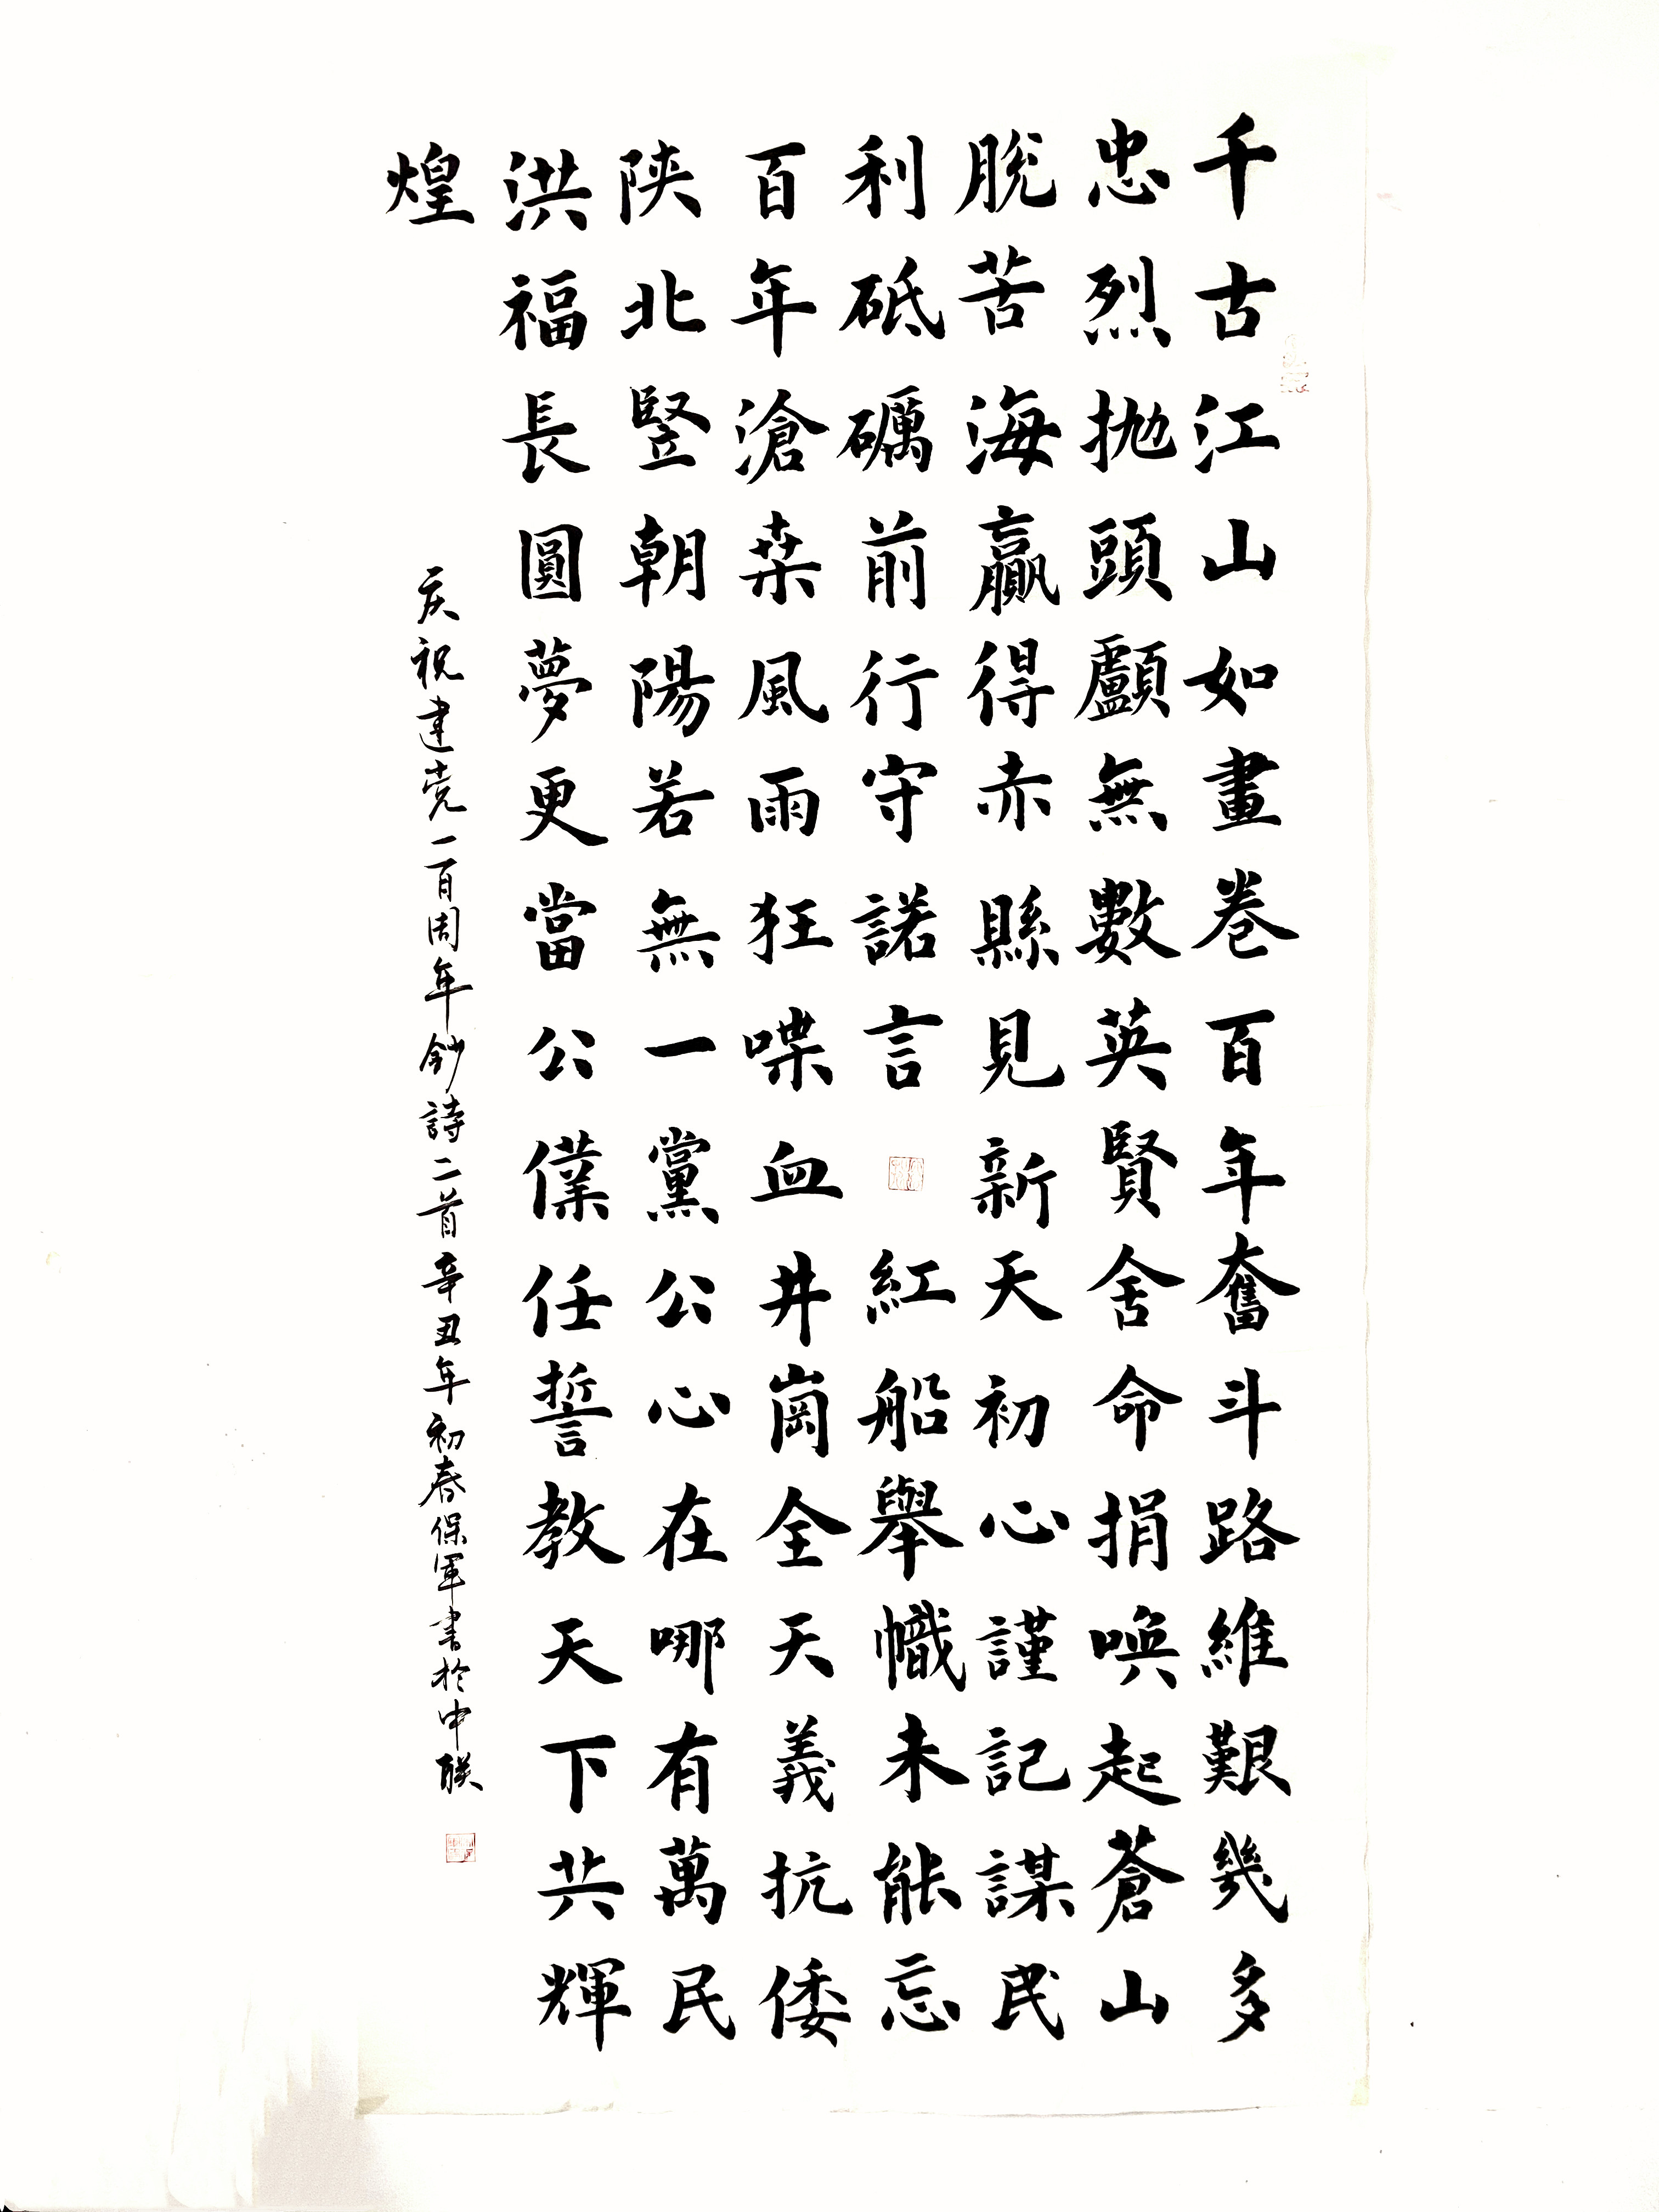 千古江山如畫卷百年奮斗路維艱幾多
忠烈抛頭顱無數英賢舍命捐喚起蒼山
脫苦海贏得赤縣見新天初心謹記謀民
利砥礪前行守諾言紅船舉幟未能忘
百年滄桒風雨狂喋血井崗全天義抗倭
陕北竪朝陽若無一黨公心在哪有萬民
洪福長圓夢更當公僕任誓教天下共輝
煌
庆祝建党一百周年鈔詩二首辛丑年初春保軍書於中联